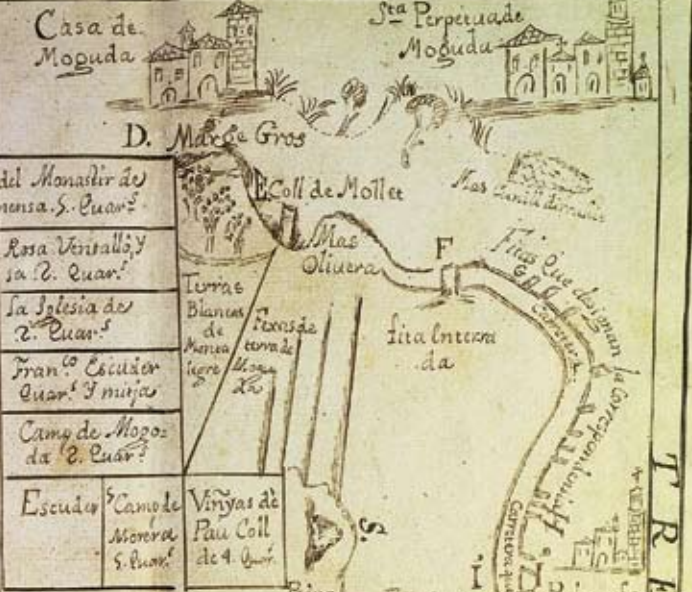 Casa de
Moguda
Sta Perpetua de
Moguda
D. Marge Gros
E Coll de Mollet
Mas
del Monastir de
5. Quars
Rosa Vensalló, y
2. Quars
la Iglesia de
2. Quars
Franco Escuder
Quars y mitja
Camp de Mogo=
da 2. Quars
Escuder
Camp de
Morera
5. Quars
Viñyas de
Pau Coll
de 4. Quar
Terras
Blancas
de
Monta
legre
Fexas de
terra de
Mogu
da
Mas
Olivera
F
fita Enterra
da
Fitas que designan la Correspondencia
G
Carretera
H
Carretera que
S.
Í
TRE